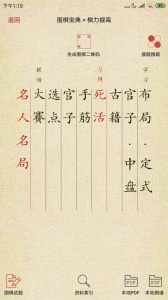 下午1:19
返回
围棋宝典 • 棋力提高
生成围棋二维码
学习
布局·定式
官子·中盘
古籍
死活
手筋
官子
选点
大赛
名人名局
围棋试题
资料索引
本地PDF